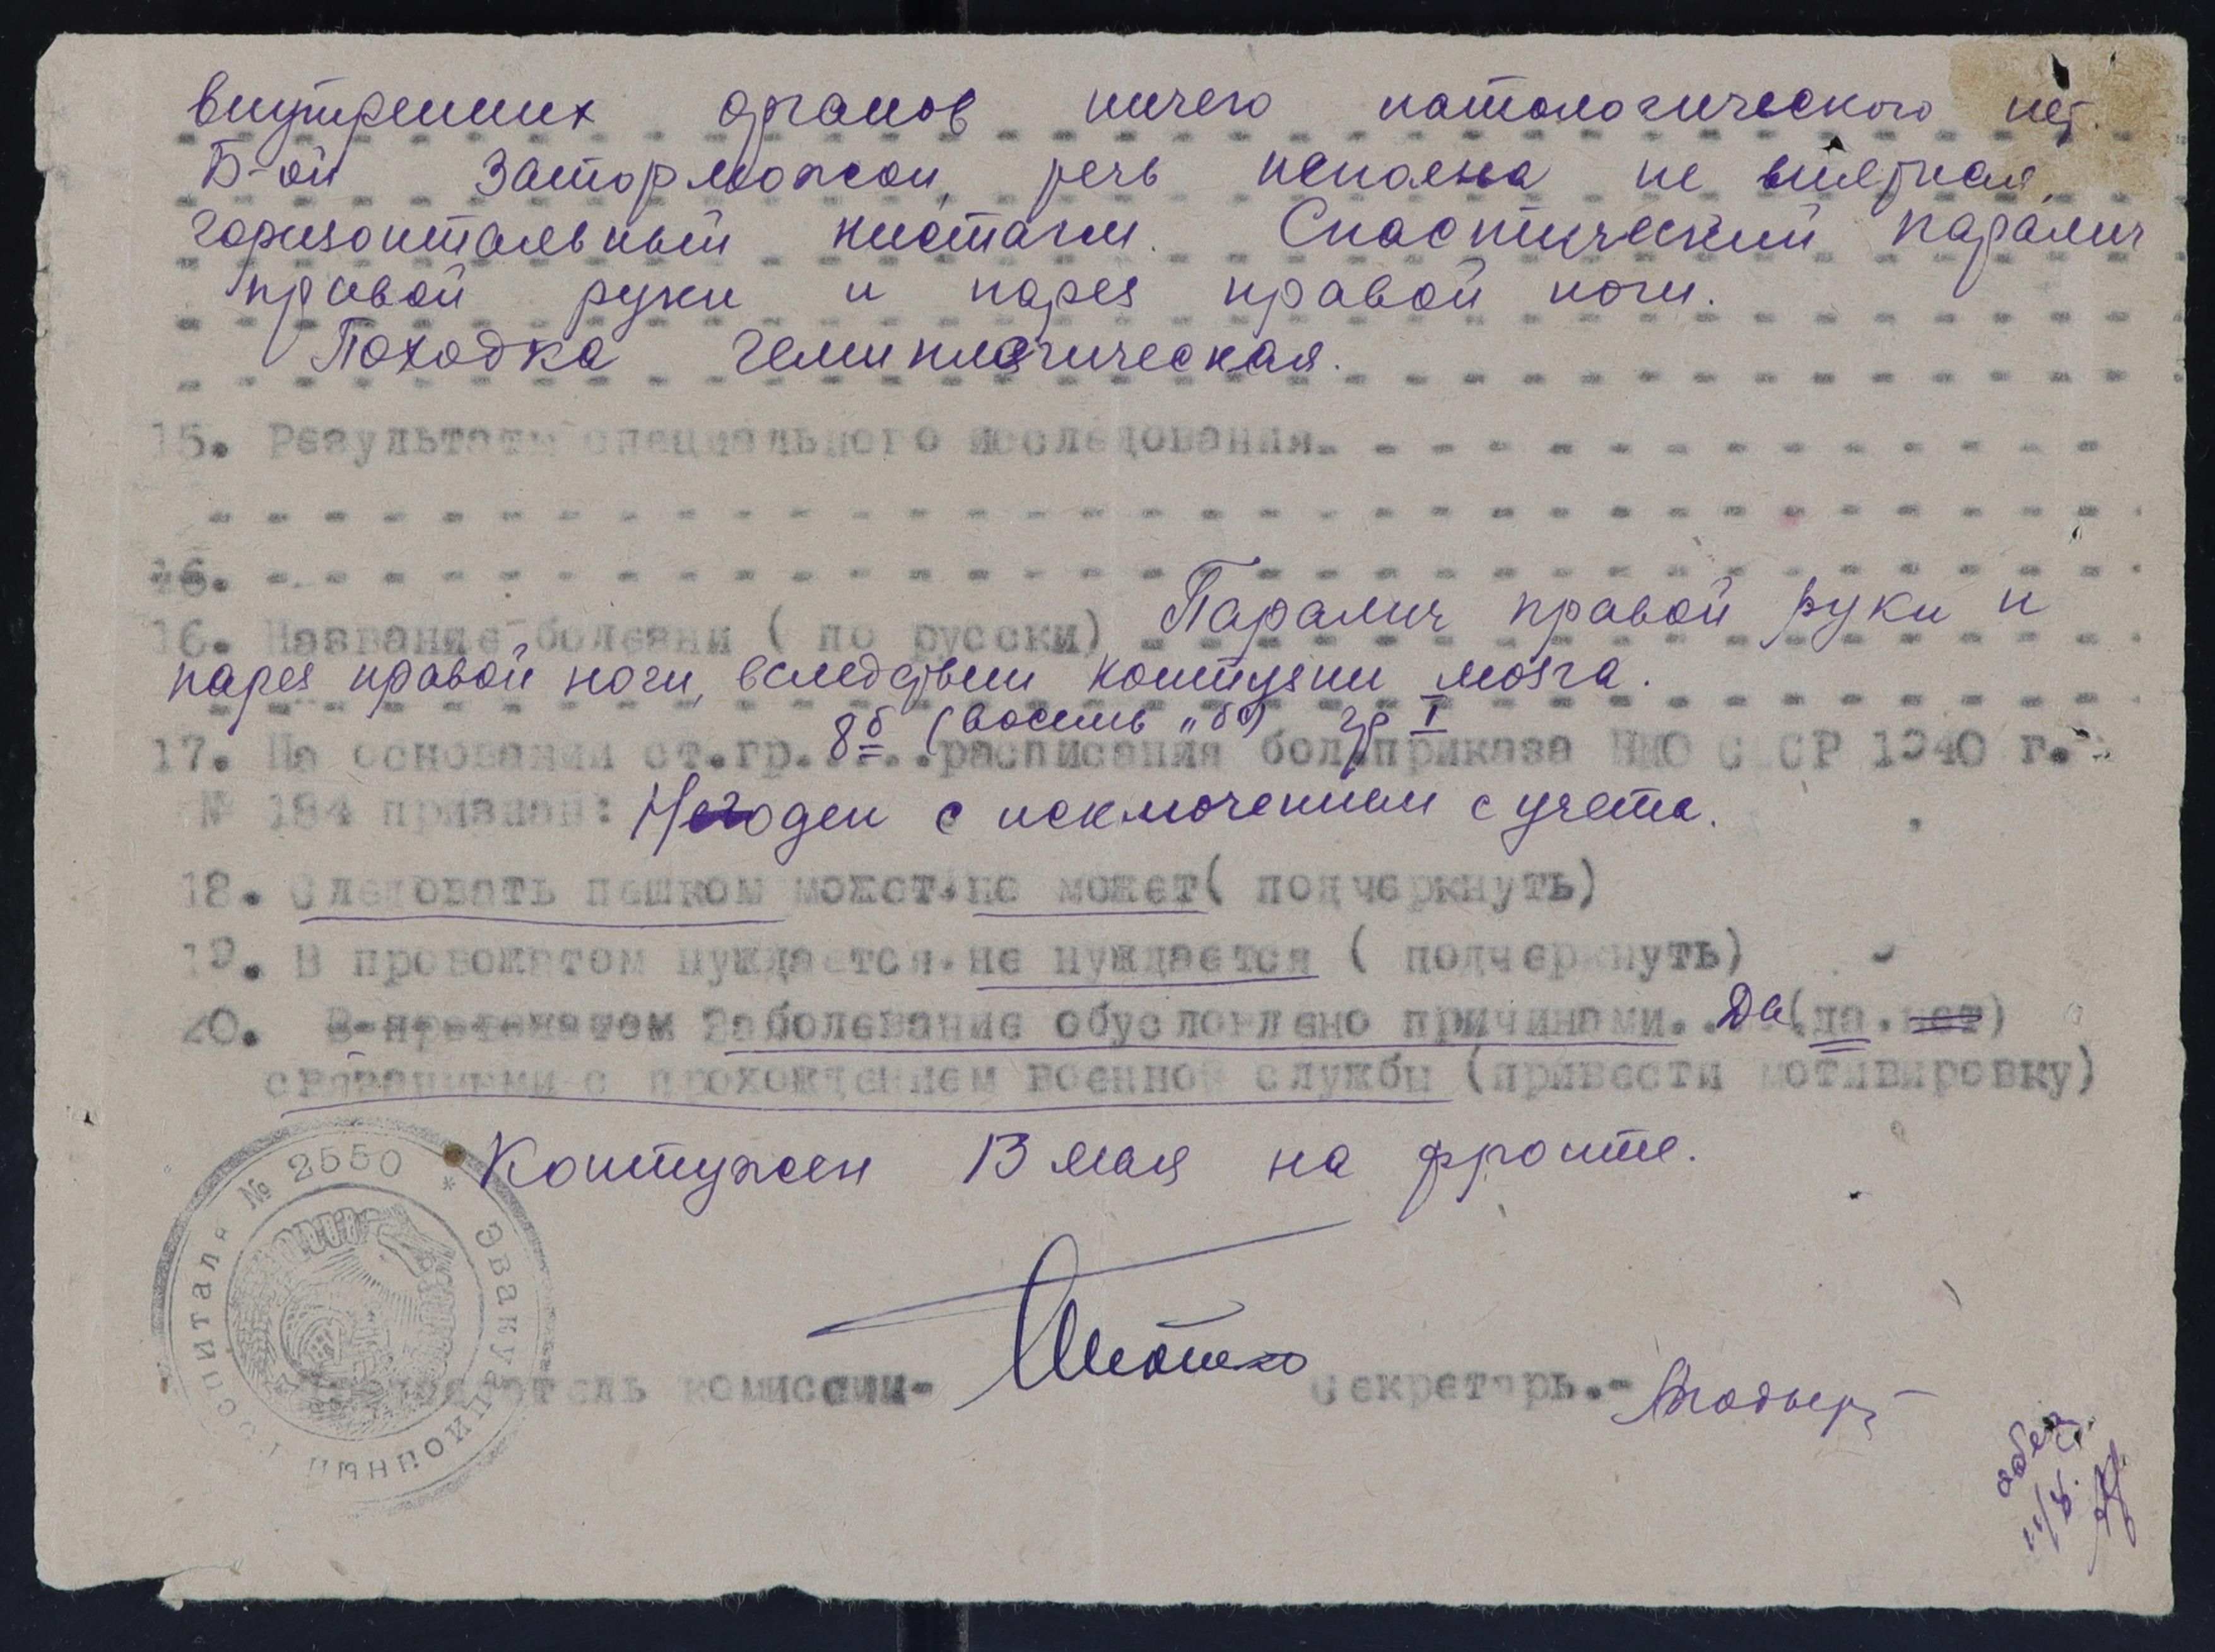 внутренних органов ничего патологического нет.
Б-ой заторможен, речь неполна не внятная,
горизонтальный нистагм. Спастический паралич
правой руки и парез правой ноги.
Походка гемиплегическая.
15. Результаты специального исследования
16.
16. Название болезни ( по русски) Паралич правой руки и
парез правой ноги, вследствии контузии мозга.
8б (восемь "б") гр I
17. На основании ст.гр.....расписания бол.приказа НКО С СР 1940 г.
№ 184 признан: Негоден с исключением с учета.
18. Следовать пешком может.не может( подчеркнуть)
19. В провожатом нуждается.не нуждается ( подчеркнуть)
20. В провожатом Заболевание обусловлено причинами.. Да (да.нет)
связанными с прохождением военной службы (привести мотивировку)
Контужен 13 мая на фронте.
Эвакуационный госпиталя № 2550 *
Председатель комиссии- Секретарь.-